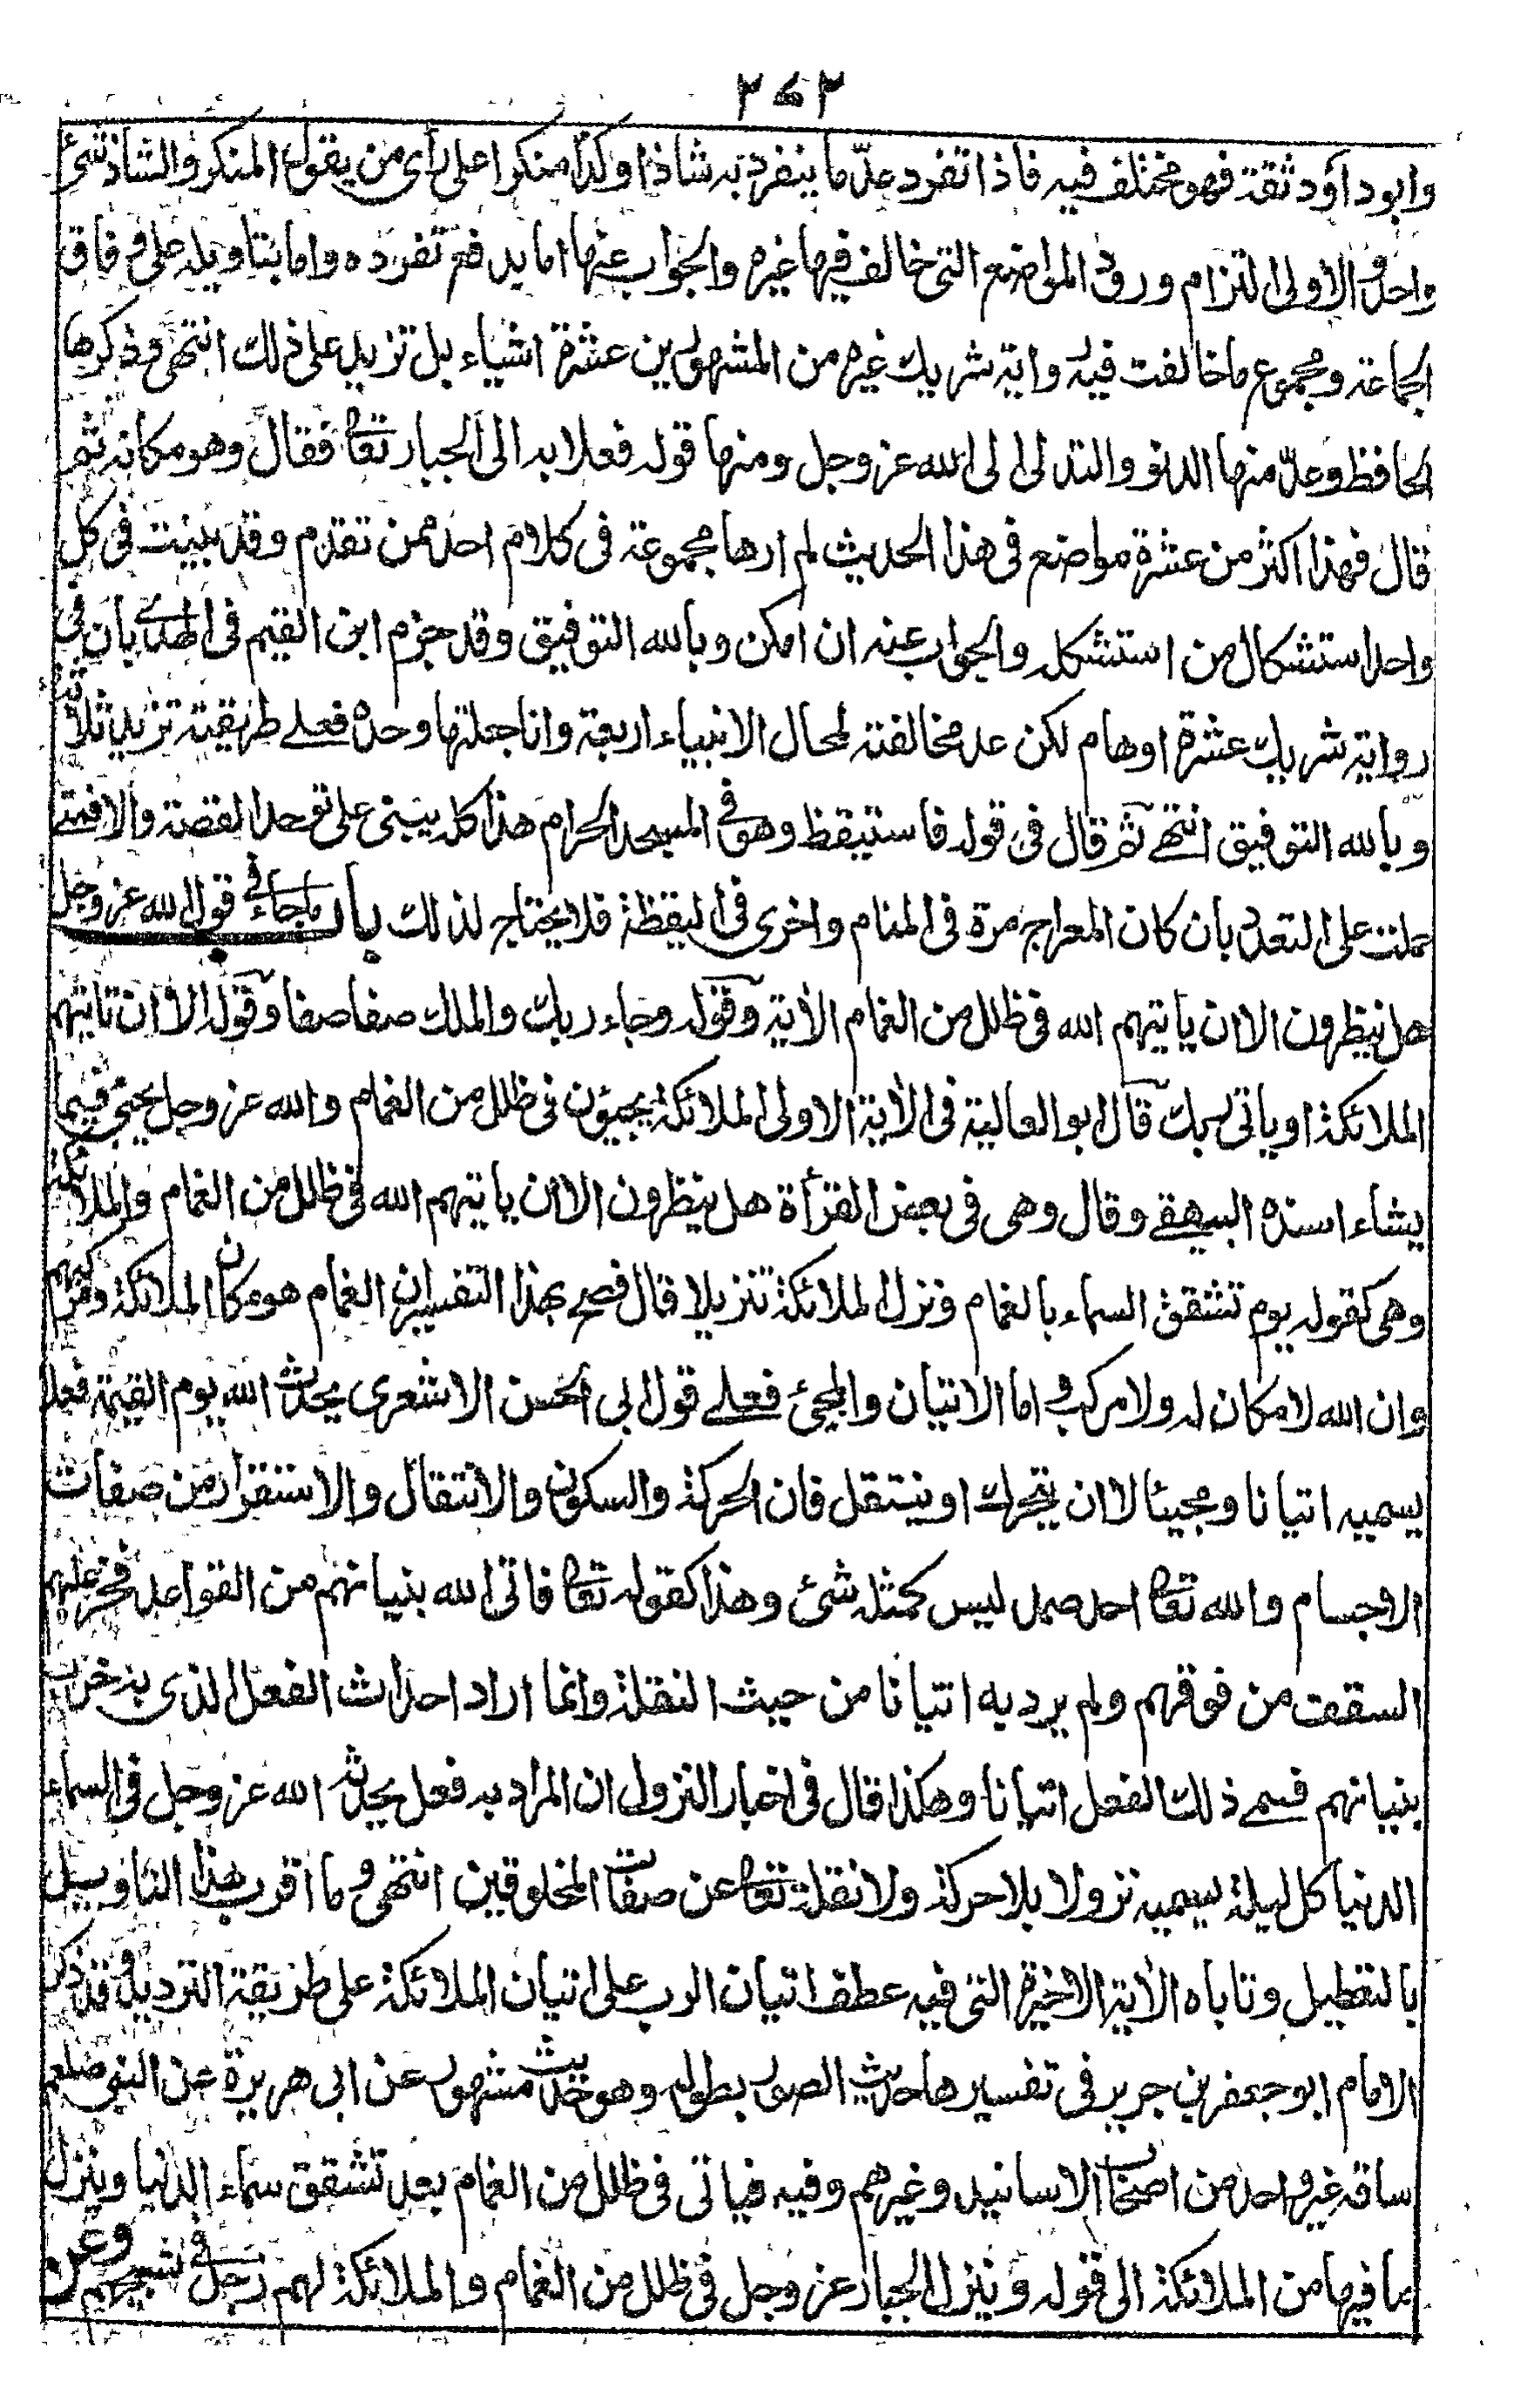 ٢٧٢
وابو داؤد ثقة فهو مختلف فيه فاذا تفرد عدّ ما ينفرد به شاذا وكذا منكرا على رأى من يقول المنكر والشاذ شئ
واحد والاولى التزام ورود المواضع التى خالف فيها غيره والجواب عنها اما بدفع تفرده واما بتاويله على وفاق
الجماعة ومجموع ما خالفت فيه رواية شريك غيره من المشهورين عشرة اشياء بل تزيد على ذلك انتهى وذكرها
الحافظ وعدّ منها الدنو والتدلى الى الله عز وجل ومنها قوله فعلا به الى الجبار تعا فقال وهو مكانه ثم
قال فهذا اكثر من عشرة مواضع فى هذا الحديث لم ارها مجموعة فى كلام احد ممن تقدم وقد بينت فى كل
واحد استشكال من استشكله والجواب عنه ان امكن وبالله التوفيق وقد جزم ابن القيم فى الهدى بان فى
رواية شريك عشرة اوهام لكن عد مخالفته لمحال الانبياء اربعة وانا جعلتها وحدة فعلى طريقيته تزيد ثلاثة
وبالله التوفيق انتهى ثم قال فى قوله فاستيقظ وهو فى المسجد الحرام هذا كله يبنى على توحد القصة والا فمتى
حملت على التعدد بان كان المعراج مرة فى المنام واخرى فى اليقظة فلا يحتاج لذلك باب ماجاء فى قول الله عز وجل
هل ينظرون الا ان ياتيهم الله فى ظلل من الغمام الاٰية وقوله وجاء ربك والملك صفا صفا وقوله الا ان تاتيهم
الملائكة او ياتى ربك قال ابو العالية فى الاٰية الاولى الملائكة يجيؤن فى ظلل من الغمام والله عز وجل يجئ فيما
يشاء اسنده البيهقى وقال وهى فى بعض القرأة هل ينظرون الا ان ياتيهم الله فى ظلل من الغمام والملائكة
وهى كقوله يوم تشقق السماء بالغمام ونزل الملائكة تنزيلا قال فصح بهذا التفسير ان الغمام هو مكان الملائكة ومركبهم
وان الله لا مكان له ولا مركب واما الاتيان والمجئ فعلى قول ابى الحسن الاشعرى يحدث الله يوم القيمة فعلا
يسميه اتيانا ومجيئا لا ان يتحرك او ينتقل فان الحركة والسكون والانتقال والاستقرار من صفات
الاجسام والله تعا احد صمد ليس كمثله شئ وهذا كقوله تعا فاتى الله بنيانهم من القواعد فخر عليهم
السقف من فوقهم ولم يرد به اتيانا من حيث النقلة وانما اراد احداث الفعل الذى به خرب
بنيانهم فسمى ذلك الفعل اتيانا وهكذا قال فى اخبار النزول ان المراد به فعل يحدثه الله عز وجل فى السماء
الدنيا كل ليلة يسميه نزولا بلا حركة ولا نقلة تعا عن صفات المخلوقين انتهى وما اقرب هذا التاويل
بالتعطيل وتاباه الاٰية الاخيرة التى فيه عطف اتيان الرب على اتيان الملائكة على طريقة الترديد وقد ذكر
الامام ابو جعفر بن جرير فى تفسيرها حديث الصور بطوله وهو حديث مشهور عن ابى هريرة عن النبى صلعم
ساقه غير واحد من اصحاب الاسانيد وغيرهم وفيه فياتى فى ظلل من الغمام بعد تشقق سماء الدنيا وينزل
ما فيها من الملائكة الى قوله وينزل الجبار عز وجل فى ظلل من الغمام والملائكة لهم زجل فى تسبيحهم وعن